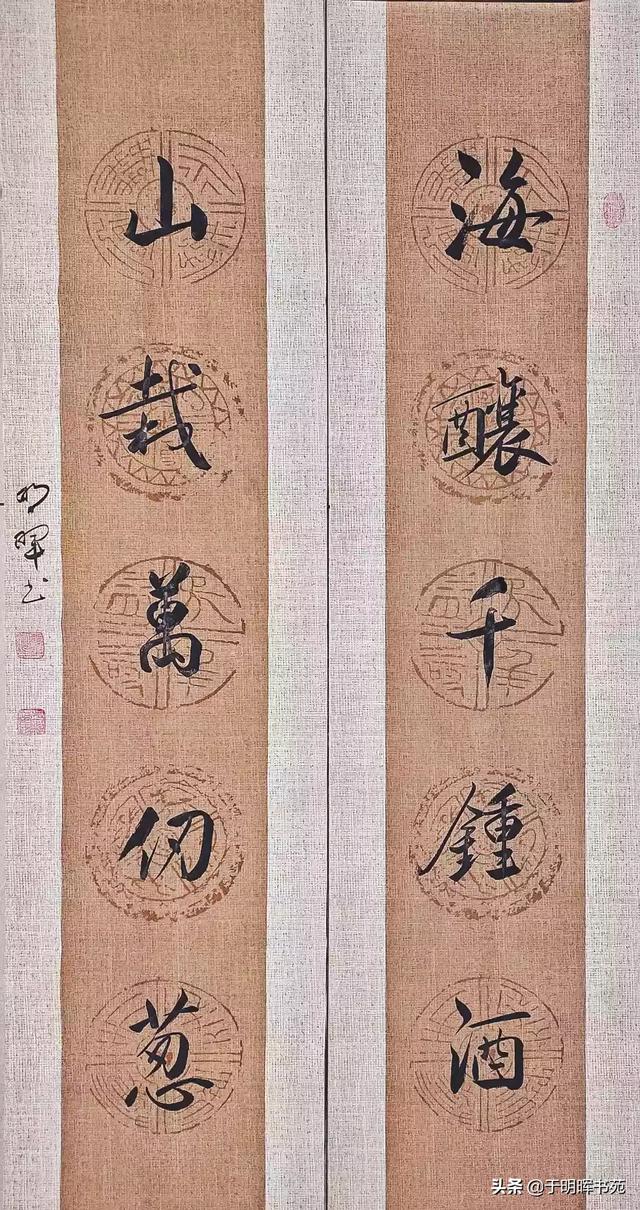 海釀千鍾酒
山栽萬仞葱
明暉书
头条 @于明晖书苑